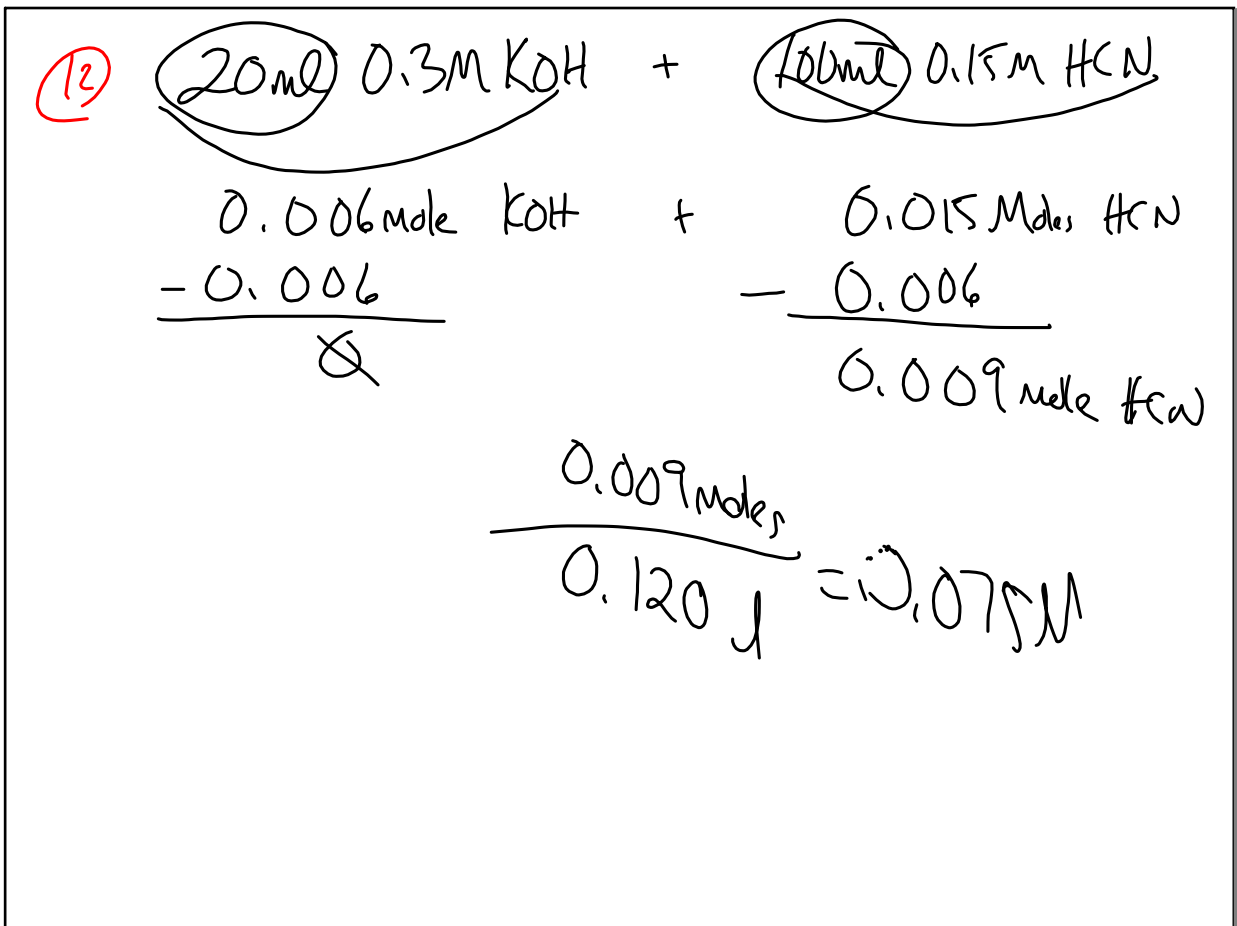 12 20ml 0.3M KOH + 100ml 0.15M HCN
0.006 mole KOH + 0.015 Moles HCN
- 0.006 - 0.006
0 0.009 mole HCN
0.009 moles
0.120 l = 0.075M